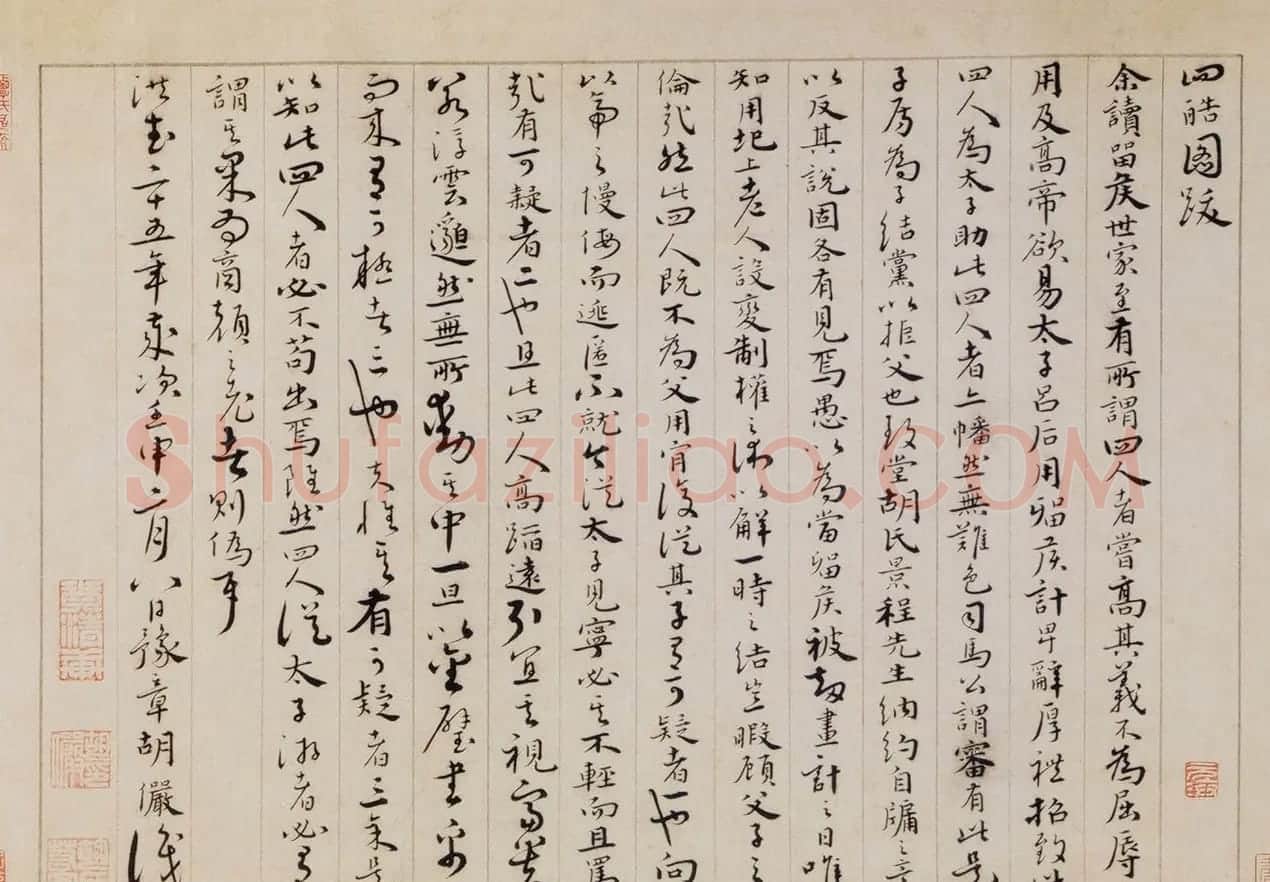 四皓图跋
余讀留矦世家至有所謂四人者嘗高其義不為屈辱
用及高帝欲易太子呂后用留矦計卑辭厚禮招致
四人為太子助此四人者上幡然無難色司馬公謂審有此是
子房為子結黨以拒父也致堂胡氏景程先生納約自牖之言
以反其說固各有見焉愚以為當留矦被劫畫計之日唯
知用圯上老人設變制權之術以解一時之結豈暇顧父子之
倫哉然此四人既不為父用肯復從其子有可疑者一也向
以帝之慢侮而逃匿不就今從太子見寧必其不輕而且罵
哉有可疑者二也且此四人高蹈遠引宜其視富貴
若浮雲邈然無所動其中一旦以金璧書帛
而來有可疑者三也夫惟其有可疑者三氣是
以知此四人者必不苟出焉雖然四人從太子游者必有
謂其果為商顏之老者則偽耳
洪武二十五年歲次壬申二月八日豫章胡儼識
Shufaziliao.COM